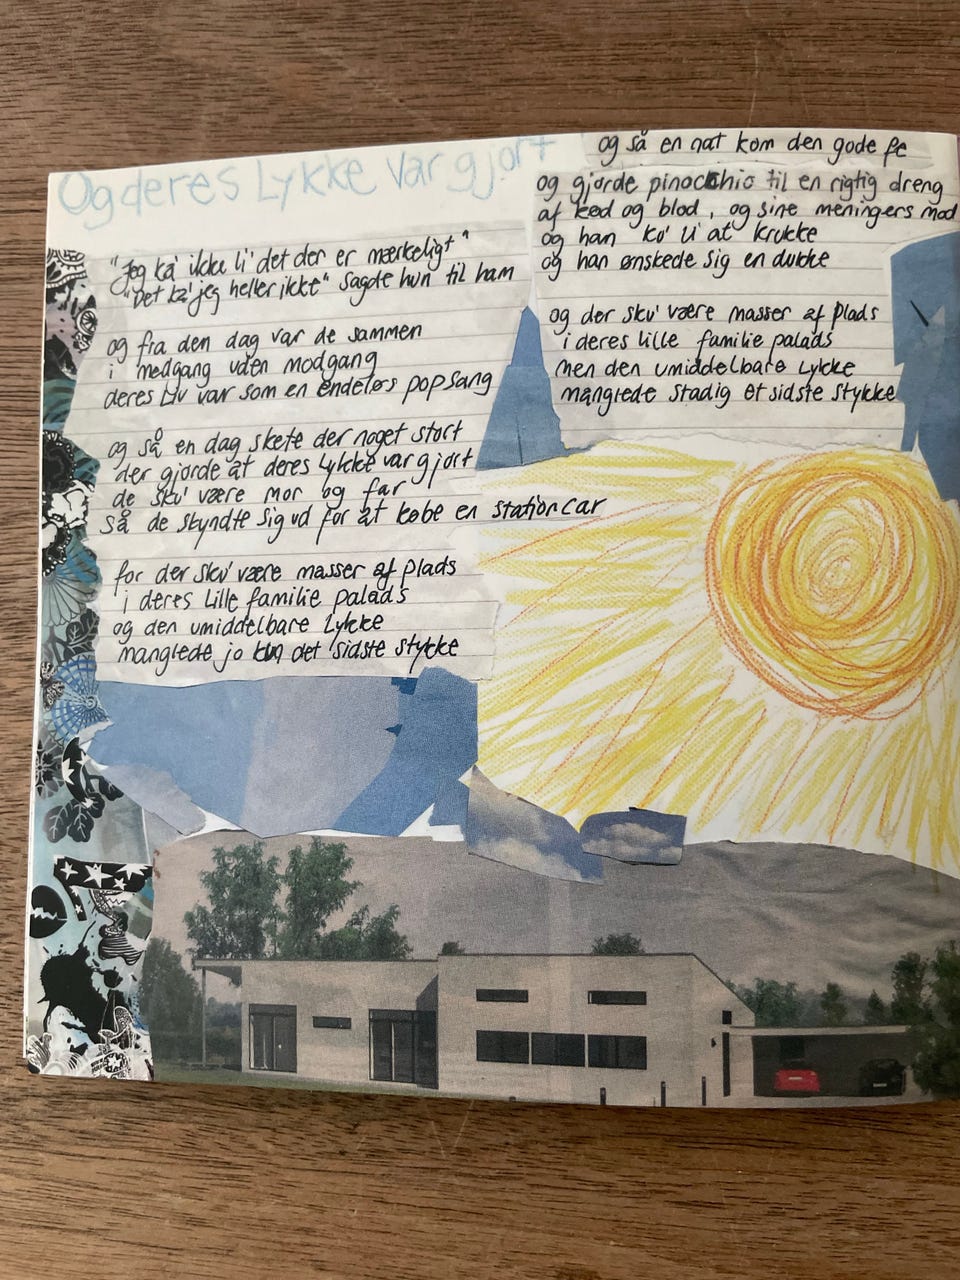 Og deres Lykke var gjort
"Jeg ka' ikke li' det der er mærkeligt"
"Det ka' jeg heller ikke" sagde hun til ham
og fra den dag var de sammen
i medgang uden modgang
deres liv var som en endeløs popsang
og så en dag skete der noget stort
der gjorde at deres lykke var gjort
de sku' være mor og far
så de skyndte sig ud for at købe en stationcar
for der sku' være masser af plads
i deres lille familie palads
og den umiddelbare lykke
manglede jo kun det sidste stykke
og så en nat kom den gode fe
og gjorde pinocchio til en rigtig dreng
af kød og blod, og sine meningers mod
og han ku' li' at krukke
og han ønskede sig en dukke
og der sku' være masser af plads
i deres lille familie palads
men den umiddelbare lykke
manglede stadig et sidste stykke